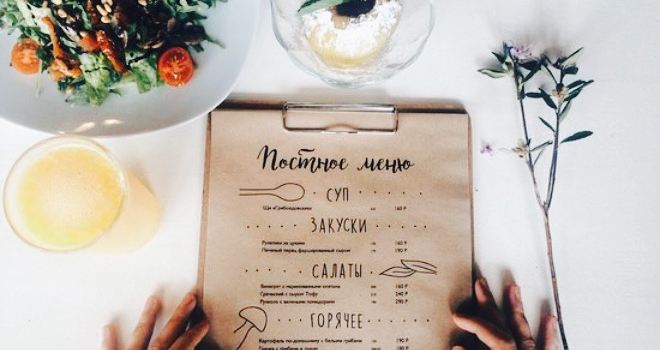 Постное меню
СУП
Щи «Грибоедовские» 160 Р
ЗАКУСКИ
Рулетики из цукини 160 Р
Печеный перец фаршированный сыром 190 Р
САЛАТЫ
Винегрет с маринованными опятами 160 Р
Греческий с сыром Тофу 240 Р
Руккола с вялеными помидорами 290 Р
ГОРЯЧЕЕ
Картофель по-домашнему с белыми грибами 190 Р
180 Р